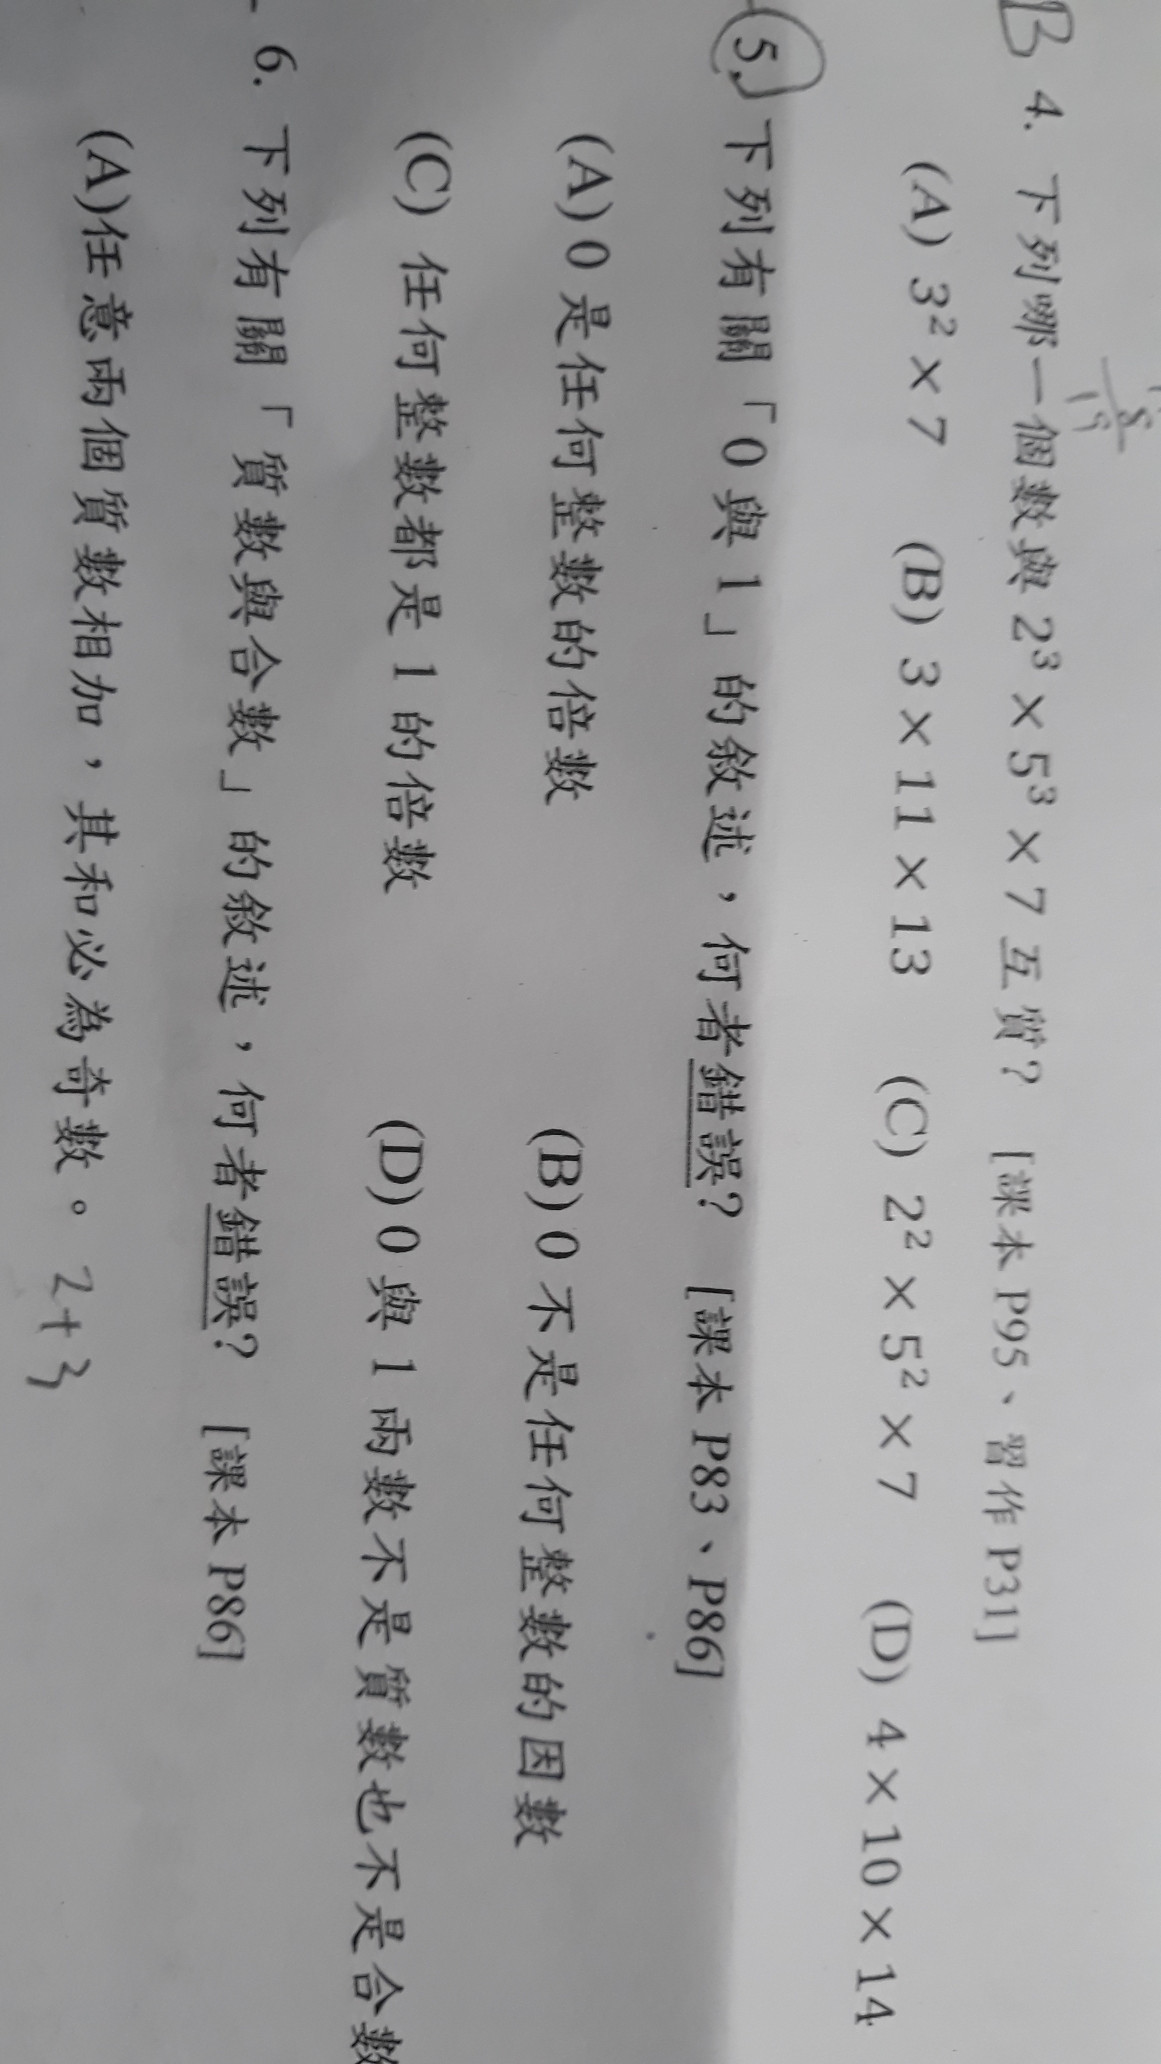 B 4. 下列哪一個數與 2³ × 5³ × 7 互質? [課本 P95、習作 P31]
(A) 3² × 7 (B) 3 × 11 × 13 (C) 2² × 5² × 7 (D) 4 × 10 × 14
5. 下列有關「0 與 1」的敘述，何者錯誤? [課本 P83、P86]
(A) 0 是任何整數的倍數 (B) 0 不是任何整數的因數
(C) 任何整數都是 1 的倍數 (D) 0 與 1 兩數不是質數也不是合數
6. 下列有關「質數與合數」的敘述，何者錯誤? [課本 P86]
(A)任意兩個質數相加，其和必為奇數。 2+3